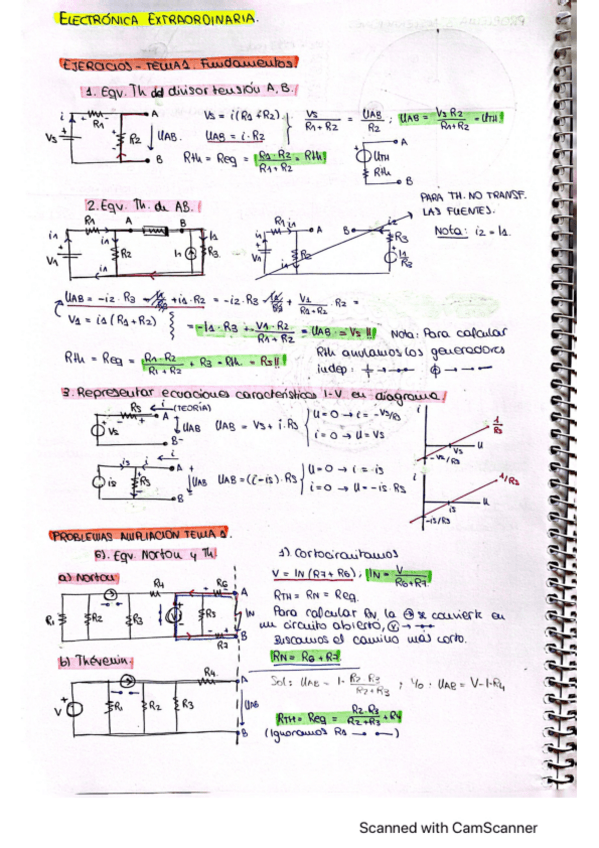 ELECTRÓNICA EXTRAORDINARIA.
EJERCICIOS - TEMA 1. Fundamentos
1. Eqv. Th del divisor tensión A, B.
i R1 A
Vs R2 UAB.
B
Vs = i(R1+R2)
UAB = i·R2
Vs/(R1+R2) = UAB/R2 ; UAB = Vs R2/(R1+R2) = UTH
Rth = Reg = R1·R2/(R1+R2) = Rth
A
UTH
RTH
B
PARA TH. NO TRANSF.
LAS FUENTES.
Nota: i2 = I1.
2. Eqv. Th. de AB.
R1 A B
i1 V1 R2 I1 R3
R1 i1 A B i2
V1 R2 R3
UAB = -i2·R3 + i1·R2 = -i2·R3 + V1/(R1+R2) R2 =
V1 = i1(R1+R2)
= -I1·R3 + V1·R2/(R1+R2) = UAB = Vs !!
Rth = Reg = R1·R2/(R1+R2) + R3 = Rth = Rs!!
Nota: Para calcular
Rth anulamos los generadores
indep:
3. Representar ecuaciones características I-V en diagrama
Rs i (TEORÍA)
A
Vs UAB
B
UAB = Vs + i·Rs
U=0 → i = -Vs/Rs
i=0 → U = Vs
i 1/Rs
Vs U
-Vs/Rs
is i A
is Rs UAB
B
UAB = (i-is)·Rs
U=0 → i = is
i=0 → U = -is·Rs
i 1/Rs
is U
-is/Rs
PROBLEMAS AMPLIACIÓN TEMA 1.
6). Eqv. Norton y Th.
a) Norton
R4 R6 A
R1 R2 R3 R5 IN
R7 B
1) Cortocircuitamos
V = IN(R7+R6) ; IN = V/(R6+R7)
RTH = RN = Reg.
Para calcular RN la se convierte en
un circuito abierto,
Buscamos el camino más corto.
RN = R6+R7
b) Thévenin
R4 A
V R1 R2 R3 UAB
B
Sol: UAB = I· R2·R3/(R2+R3) ; UAB = V-I·R4
RTH = Reg = R2·R3/(R2+R3) + R4
(Ignoramos R1)
Scanned with CamScanner